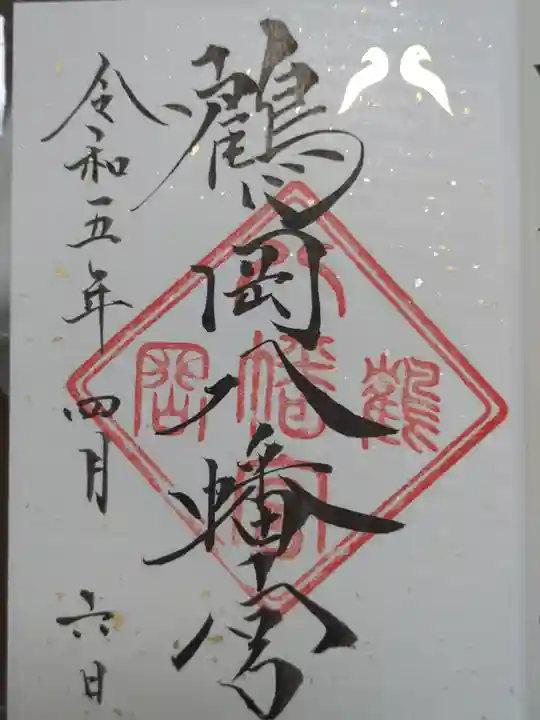 鶴岡八幡宮
令和五年四月六日
鶴岡八幡宮